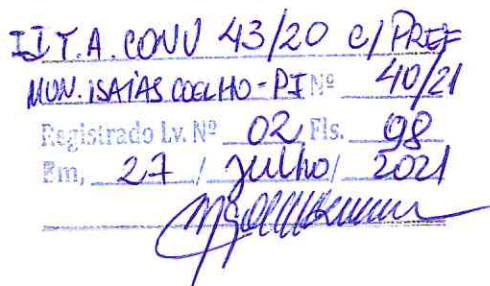 II T.A. CONV 43/20 C/ PREF
MUN. ISAÍAS COELHO-PI Nº 40/21
Registrado Lv. Nº 02 Fls. 98
Em, 27 / Julho / 2021